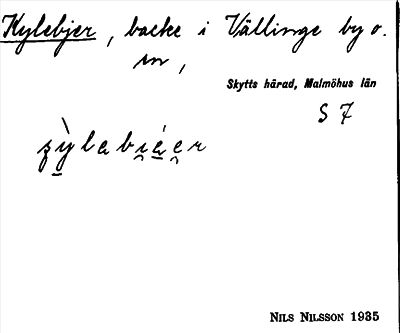 Kylebjer, backe i Vällinge by o.
sn,
Skytts härad, Malmöhus län
S 7
ʂỳlabi̯á̱e̯r
NILS NILSSON 1935